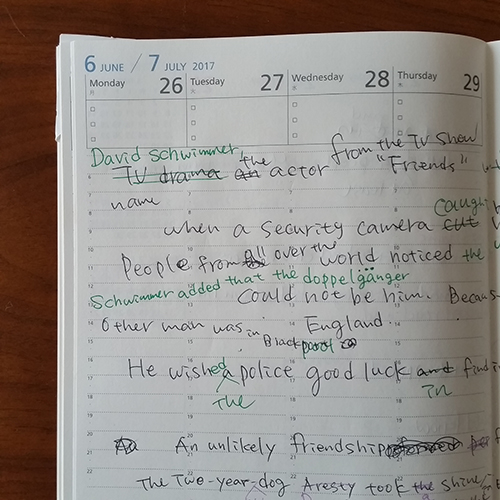 6 JUNE / 7 JULY 2017
Monday 26 Tuesday 27 Wednesday 28 Thursday 29
月 火 水 木
David Schwimmer, the from the TV show
TV drama an actor "Friends"
name
when a security camera cut caught
People from all over the world noticed the
Schwimmer added that the doppelgänger
could not be him. Because
Other man was in England.
Blackpool
He wished police good luck and find
the in
An unlikely friendship
The Two-year-dog Aresty took the shine